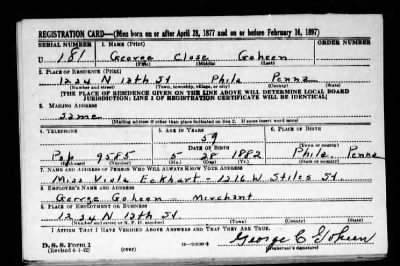 REGISTRATION CARD—(Men born on or after April 28, 1877 and on or before February 16, 1897)
SERIAL NUMBER 1. NAME (Print) ORDER NUMBER
U 181 George Close Goheen
(First) (Middle) (Last)
2. PLACE OF RESIDENCE (Print)
1224 N 12th St Phila Penna
(Number and street) (Town, township, village, or city) (County) (State)
[THE PLACE OF RESIDENCE GIVEN ON THE LINE ABOVE WILL DETERMINE LOCAL BOARD
JURISDICTION; LINE 2 OF REGISTRATION CERTIFICATE WILL BE IDENTICAL]
3. MAILING ADDRESS
Same
[Mailing address if other than place indicated on line 2. If same insert word same]
4. TELEPHONE 5. AGE IN YEARS 6. PLACE OF BIRTH
59
DATE OF BIRTH (Town or county)
Pop 9585 5-28 1882 Phila Penna
(Mo.) (Day) (Yr.) (State or country)
7. NAME AND ADDRESS OF PERSON WHO WILL ALWAYS KNOW YOUR ADDRESS
Miss Viola Eckhart - 1216 W. Stiles St.
8. EMPLOYER'S NAME AND ADDRESS
George Goheen Merchant
9. PLACE OF EMPLOYMENT OR BUSINESS
1224 N 12th St.
(Number and street or R. F. D. number) (Town) (County) (State)
I AFFIRM THAT I HAVE VERIFIED ABOVE ANSWERS AND THAT THEY ARE TRUE.
D. S. S. Form 1
(Revised 4-1-42) (over)
George C Goheen
(Registrant's signature)